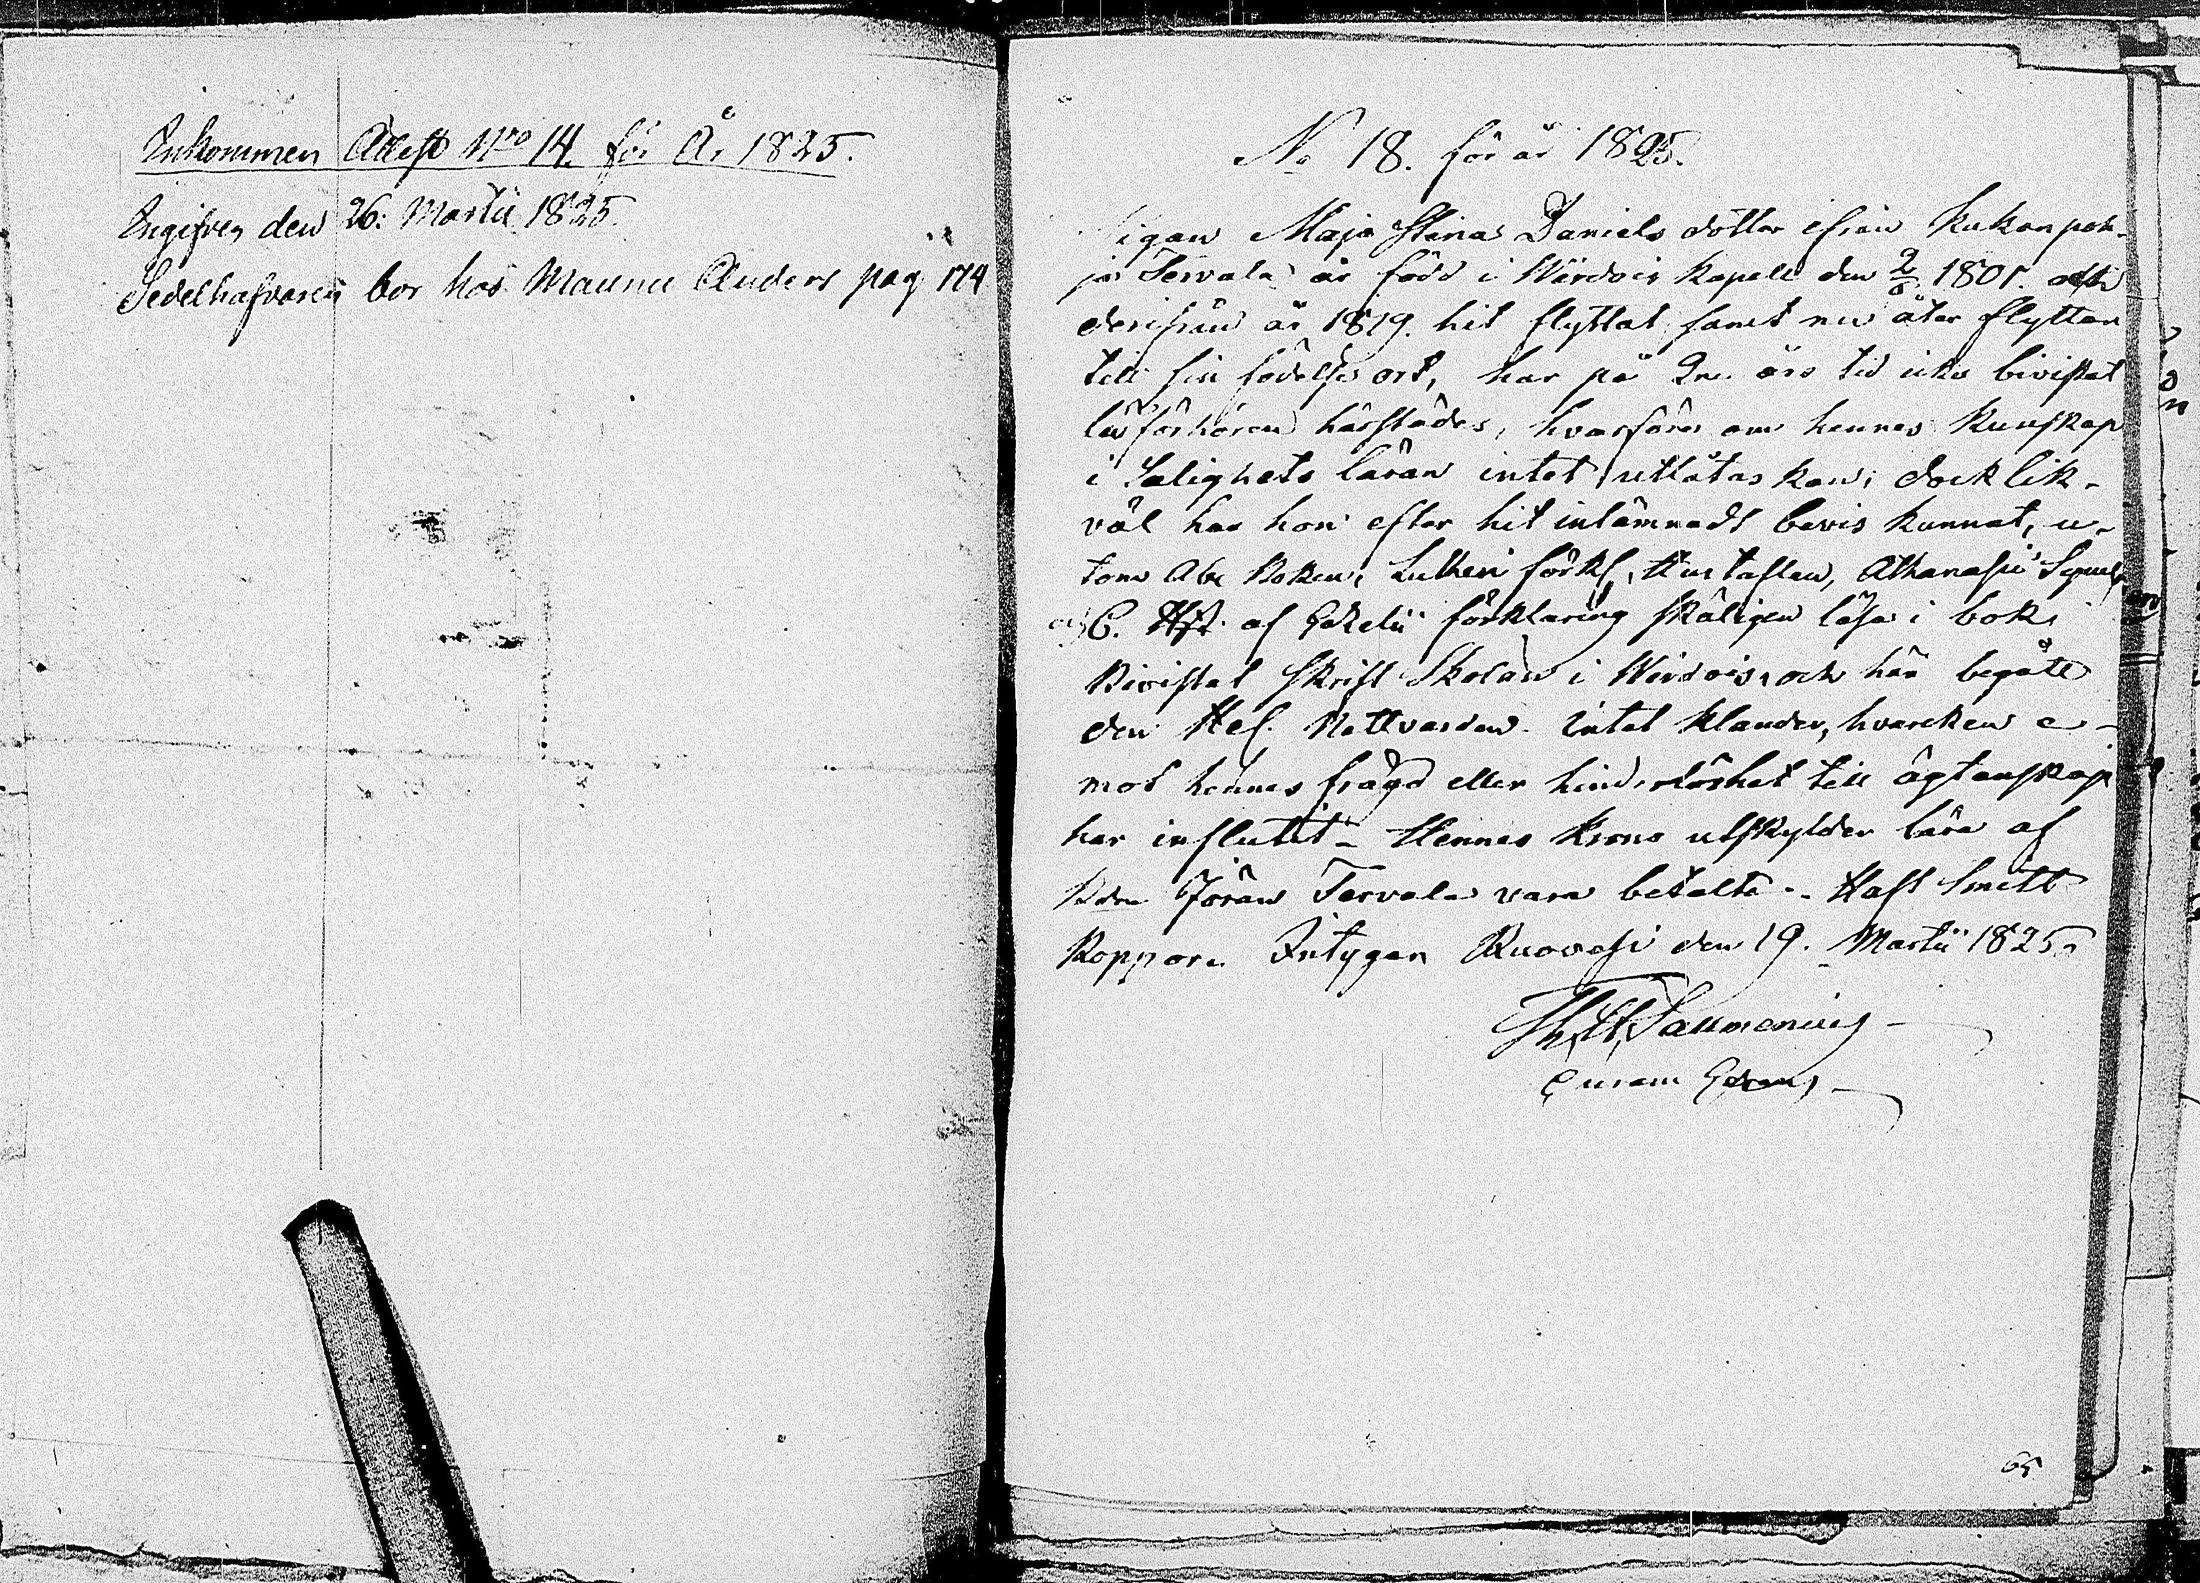 Inkommen Attest Nro 14. för År 1825.
Ingifven den 26: Martii 1825.
Sedelhafvaren bor hos Maunu Anders pag 174
No 18. för år 1825.
Pigan Maja Stina Daniels dotter ifrån Kukonpoh-
ja Tervala är född i Wirdois Kapell den 2/6 1801. och
derifrån år 1819. hit flyttat, samt nu åter flyttar
till sin födelse ort, har på 2ne års tid icke bivistat
läsförhören härstädes, hvarföre om hennes kunskap
i Salighets läran intet utlåtas kan; dock lik-
väl har hon efter hit inlämnadt bevis kunnat, u-
tom Abc Boken, Lutheri förkl, Hustaflan, Athanasii Symb.
C. af Gezelii förklaring skäligen läsa i bok,
Bivistat Skrift Skolan i Wirdois, och här begått
den Hel. Nattvarden. Intet klander, hvarcken e-
mot hennes frägd eller hinderlöshet till ägtenskap
har influtit - Hennes krono utskylder lära af
Bdn Jöran Tervala vara betalta. - Haft Smitt-
koppor. Intygar Ruovesi den 19. Martii 1825.
Th. H. Salmenius
Curam Gerens
65